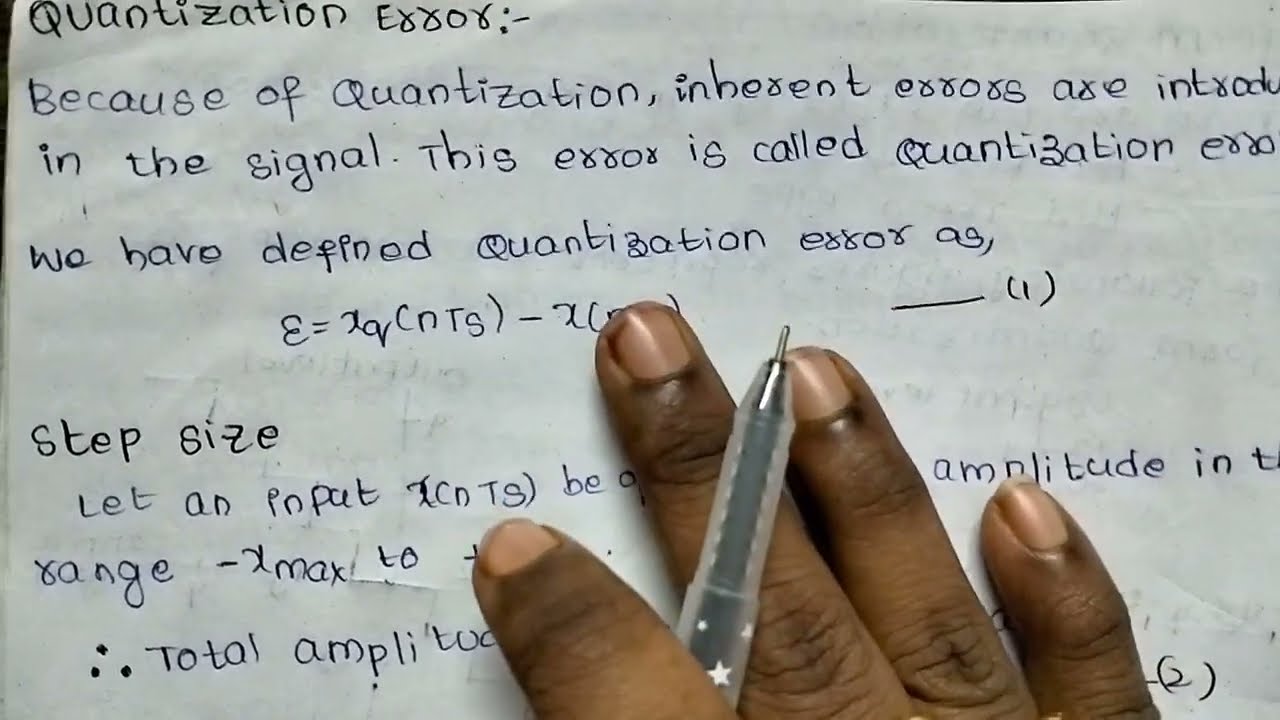 Quantization Error:-
Because of Quantization, inherent errors are introdu
in the signal. This error is called Quantization erro
We have defined Quantization error as,
ε = xq(nTs) - x( (1)
Step size
Let an input x(nTs) be amplitude in t
range -xmax to
∴ Total amplitud
(2)